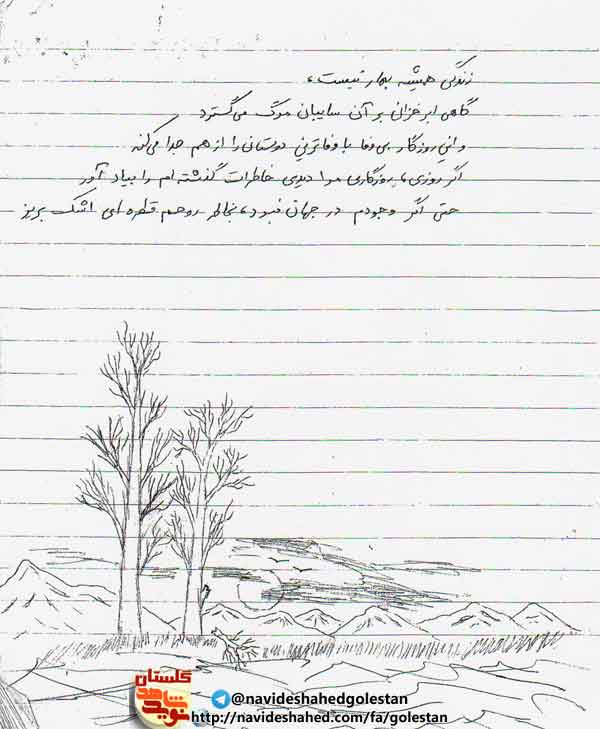 زندگی همیشه بهار نیست،
گاهی ابر خزان بر آن سایبان مرگ می‌گسترد
و این روزگار بی وفا با وفاترین دوستان را از هم جدا می‌کند
اگر روزی، روزگاری مرا دیدی خاطرات گذشته ام را بیاد آور
حتی اگر وجودم در جهان نبود، بخاطر روحم قطره ای اشک بریز
گلستان
نوید شاهد
@navideshahedgolestan
http://navideshahed.com/fa/golestan